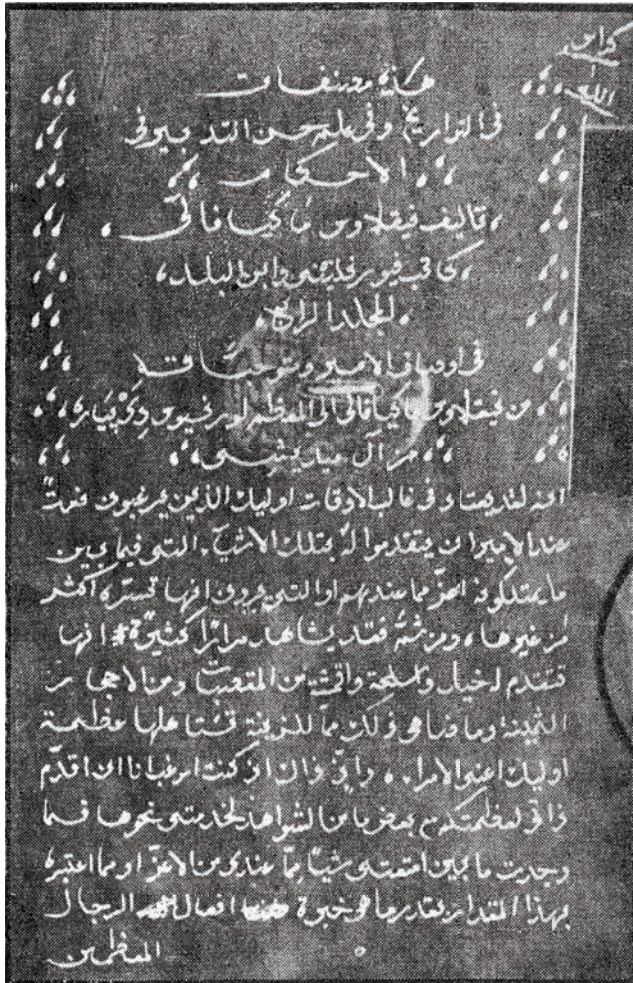 كراس
هذه مصنفات
في التواريخ وفي علم حسن التدبير وفي
الاحكام
تاليف نيقلاوس ماكيافالي
كاتب وابن البلد
المجلد الرابع
في اوصاف الامير ومتوجباته
من نيقلاوس ماكيافالي الى المعظم لورنسيوس
من آل ميديشى
انه لقد يعتاد في غالب الاوقات اوليك الذين يرغبون نعمةً
عند الامير ان يتقدموا له بتلك الاشيآء التي فيما بين
ما يمتلكونه اعزّ مما عندهم او التي يرون انها تسرّه اكثر
من غيرها، ومن ثمَّه فقد يشاهد مرارًا كثيرة انها
تتقدم له خيل واسلحة واقمشة من المقصبات ومن الاحجار
الثمينة وما ضاهى ذلك مما للزينة تستاهلها عظمة
اوليك اعني الامرا، واني اذ كنت ارغب انا ان اقدّم
ذاتي لعظمتكم ببعض ما من الشواهد لخدمتى نحوها فما
وجدت ما بين امتعتى شيًا ممّا عندي من الاعزّ او مما اعتبره
بهذا المقدار بقدر ما هو خبرة افعال الرجال
المعظمين